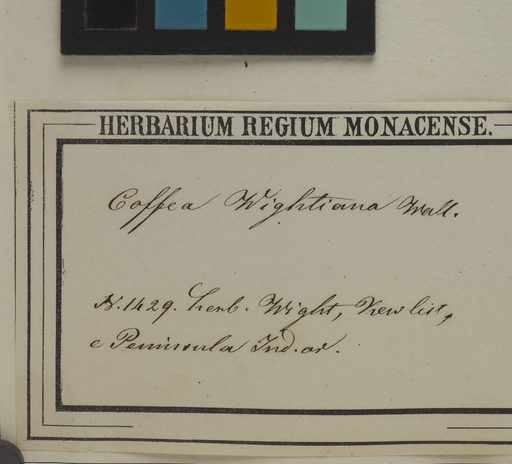 HERBARIUM REGIUM MONACENSE.
Coffea Wightiana Wall.
N. 1429. herb. Wight, New list,
e Peninsula Ind. or.